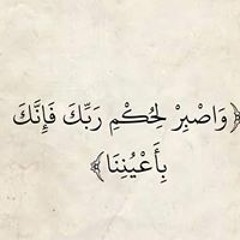 ﴿وَاصْبِرْ لِحُكْمِ رَبِّكَ فَإِنَّكَ
بِأَعْيُنِنَا﴾